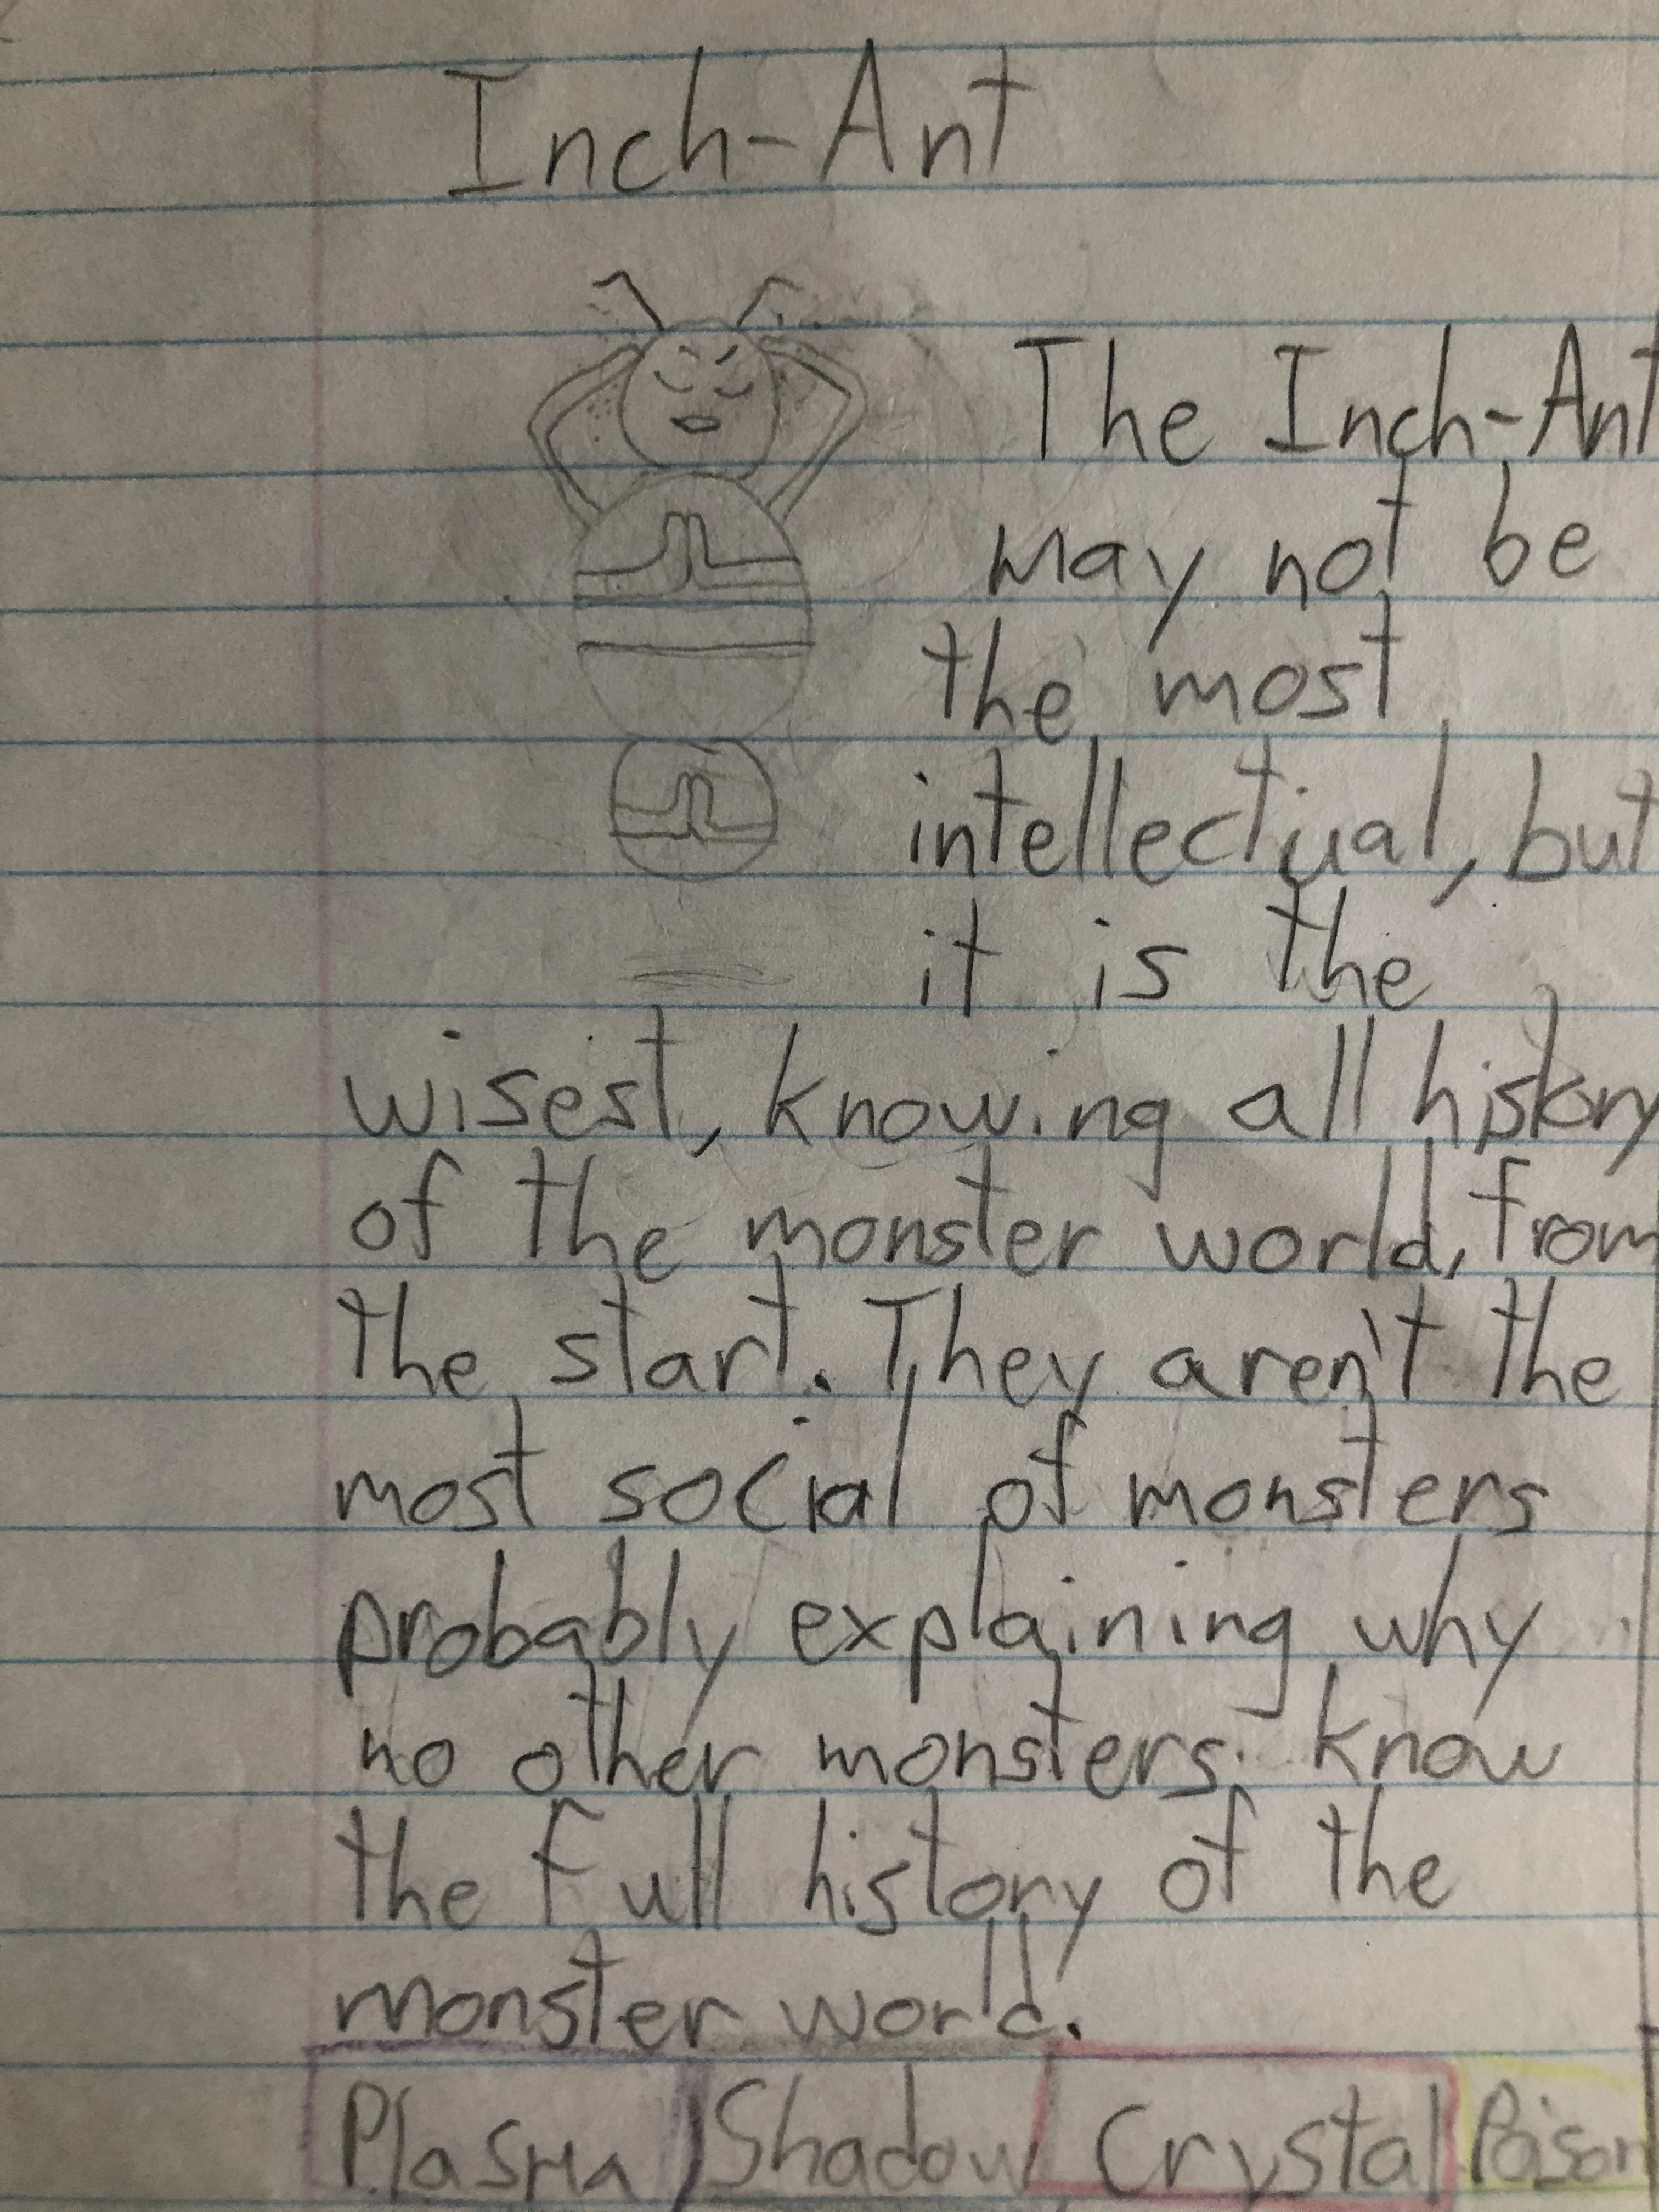 Inch-Ant
The Inch-Ant
may not be
the most
intellectual, but
it is the
wisest, knowing all history
of the monster world, from
the start. They aren't the
most social of monsters
probably explaining why
no other monsters know
the full history of the
monster world.
Plasma Shadow Crystal Poison